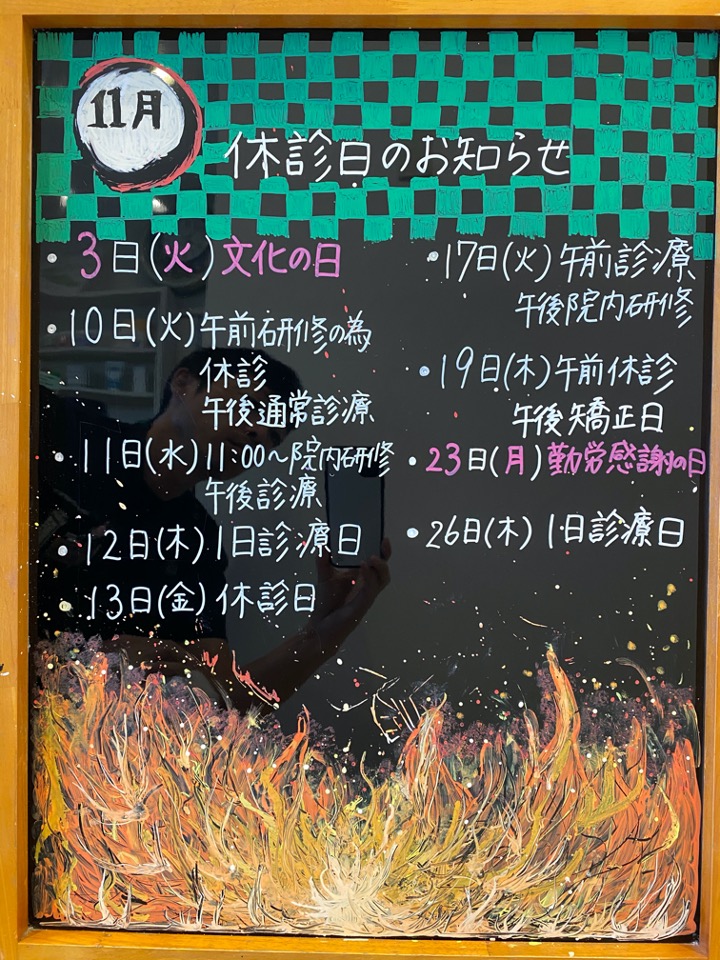 11月
休診日のお知らせ
・3日(火)文化の日
・10日(火)午前研修の為
休診
午後通常診療
・11日(水)11:00〜院内研修
午後診療
・12日(木)1日診療日
・13日(金)休診日
・17日(火)午前診療
午後院内研修
・19日(木)午前休診
午後矯正日
・23日(月)勤労感謝の日
・26日(木)1日診療日